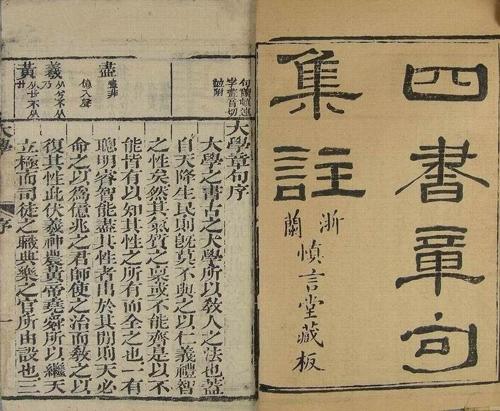 四書章句
集註
浙
蘭慎言堂藏板
大學章句序
大學之書古之大學所以敎人之法也蓋
自天降生民則旣莫不與之以仁義禮智
之性矣然其氣質之稟或不能齊是以不
能皆有以知其性之所有而全之也一有
聰明睿智能盡其性者出於其閒則天必
命之以爲億兆之君師使之治而敎之以
復其性此伏羲神農黃帝堯舜所以繼天
立極而司徒之職典樂之官所由設也三
盡
億入聲
羲
黃
大學
序
一